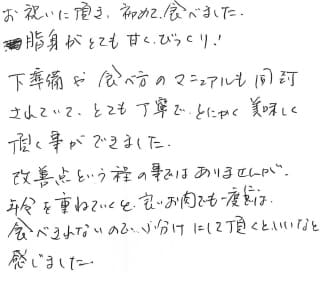 お祝いに頂き、初めて食べました.
脂身がとても甘く、びっくり!
下準備や食べ方のマニュアルも同封
されていて、とても丁寧で、とにかく美味しく
頂く事ができました.
改善点という程の事ではありませんが、
年令を重ねていくと、良いお肉でも一度には
食べきれないので、小分けにして頂くといいなと
感じました.